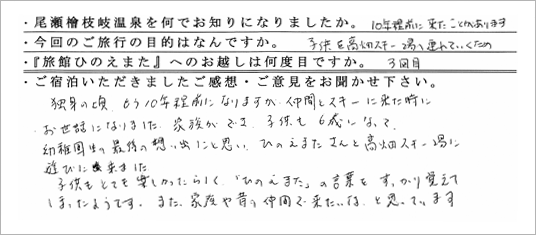 ・尾瀬檜枝岐温泉を何でお知りになりましたか。 10年程前に来たことがあります
・今回のご旅行の目的はなんですか。 子供を高畑スキー場へ連れていくため
・『旅館ひのえまた』へのお越しは何度目ですか。 3回目
・ご宿泊いただきましたご感想・ご意見をお聞かせ下さい。
独身の頃、もう10年程前になりますが、仲間とスキーに来た時に
お世話になりました。家族ができ、子供も6歳になって、
幼稚園生の最後の想い出にと思い、ひのえまたさんと高畑スキー場に
遊びに来ました
子供もとても楽しかったらしく、「ひのえまた」の言葉をすっかり覚えて
しまったようです。また、家族や昔の仲間で来たいな、と思っています